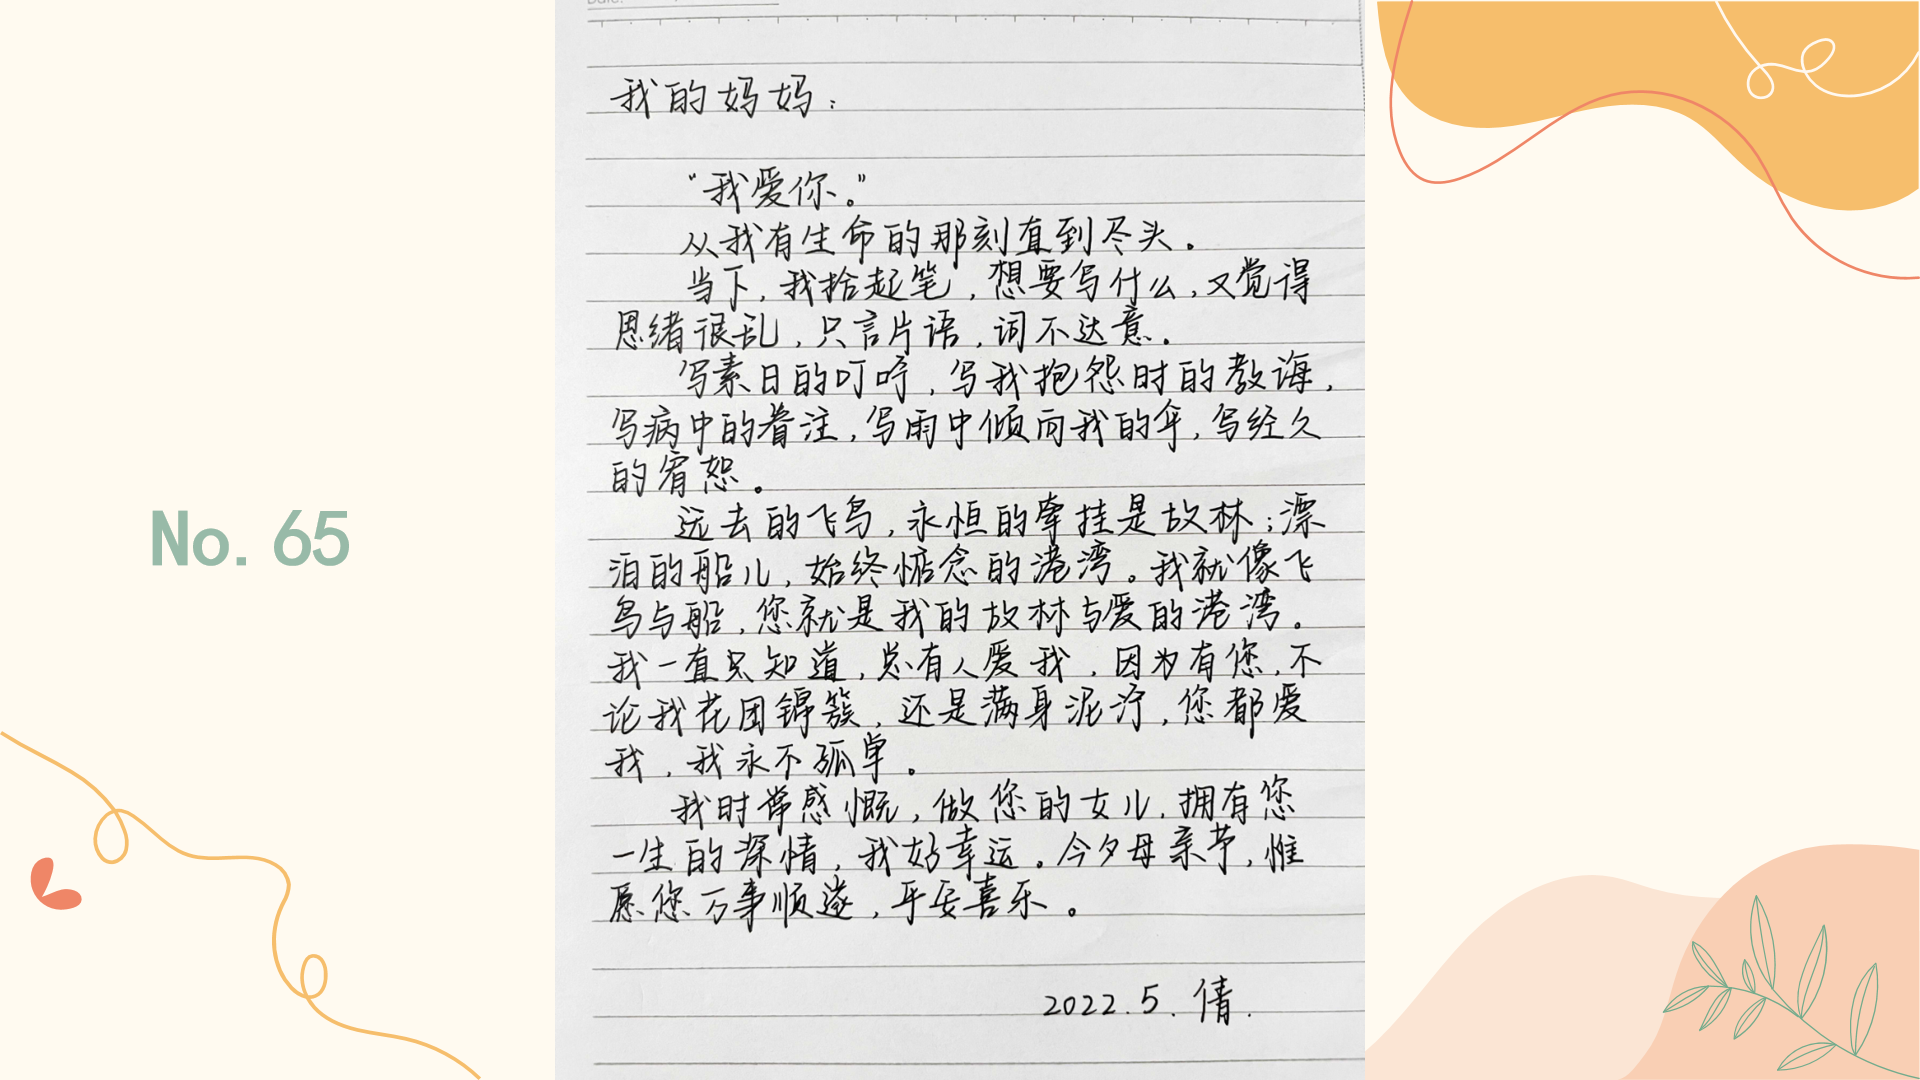 No. 65
我的妈妈：
“我爱你。”
从我有生命的那刻直到尽头。
当下，我拾起笔，想要写什么，又觉得
思绪很乱，只言片语，词不达意。
写素日的叮咛，写我抱怨时的教诲，
写病中的眷注，写雨中倾向我的伞，写经久
的宥恕。
远去的飞鸟，永恒的牵挂是故林；漂
泊的船儿，始终惦念的港湾。我就像飞
鸟与船，您就是我的故林与爱的港湾。
我一直只知道，总有人爱我，因为有您，不
论我花团锦簇，还是满身泥泞，您都爱
我，我永不孤单。
我时常感慨，做您的女儿，拥有您
一生的深情，我好幸运。今夕母亲节，惟
愿您万事顺遂，平安喜乐。
2022.5.倩.